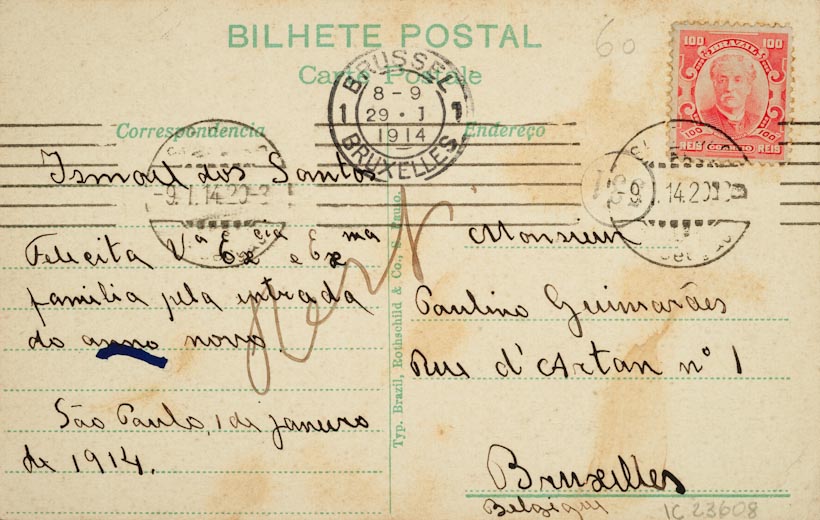 BILHETE POSTAL
Carte Postale
60
100 BRAZIL 100
100 CORREIO 100
REIS REIS
BRUSSEL
8-9
1 29·I 1
1914
BRUXELLES
Correspondencia
Endereço
-9.I.14.20-
9.I.14.20
Ismael dos Santos
Felicita Vª Exᶜⁱᵃ e Exᵐᵃ
familia pela intrada
do anno novo.
São Paulo, 1 de janeiro
de 1914.
Typ. Brazil, Rothschild & Co., S. Paulo.
Monsieur
Paulino Guimarães
Rue d'Artan nº 1
Bruxelles
Belgique
IC 23608